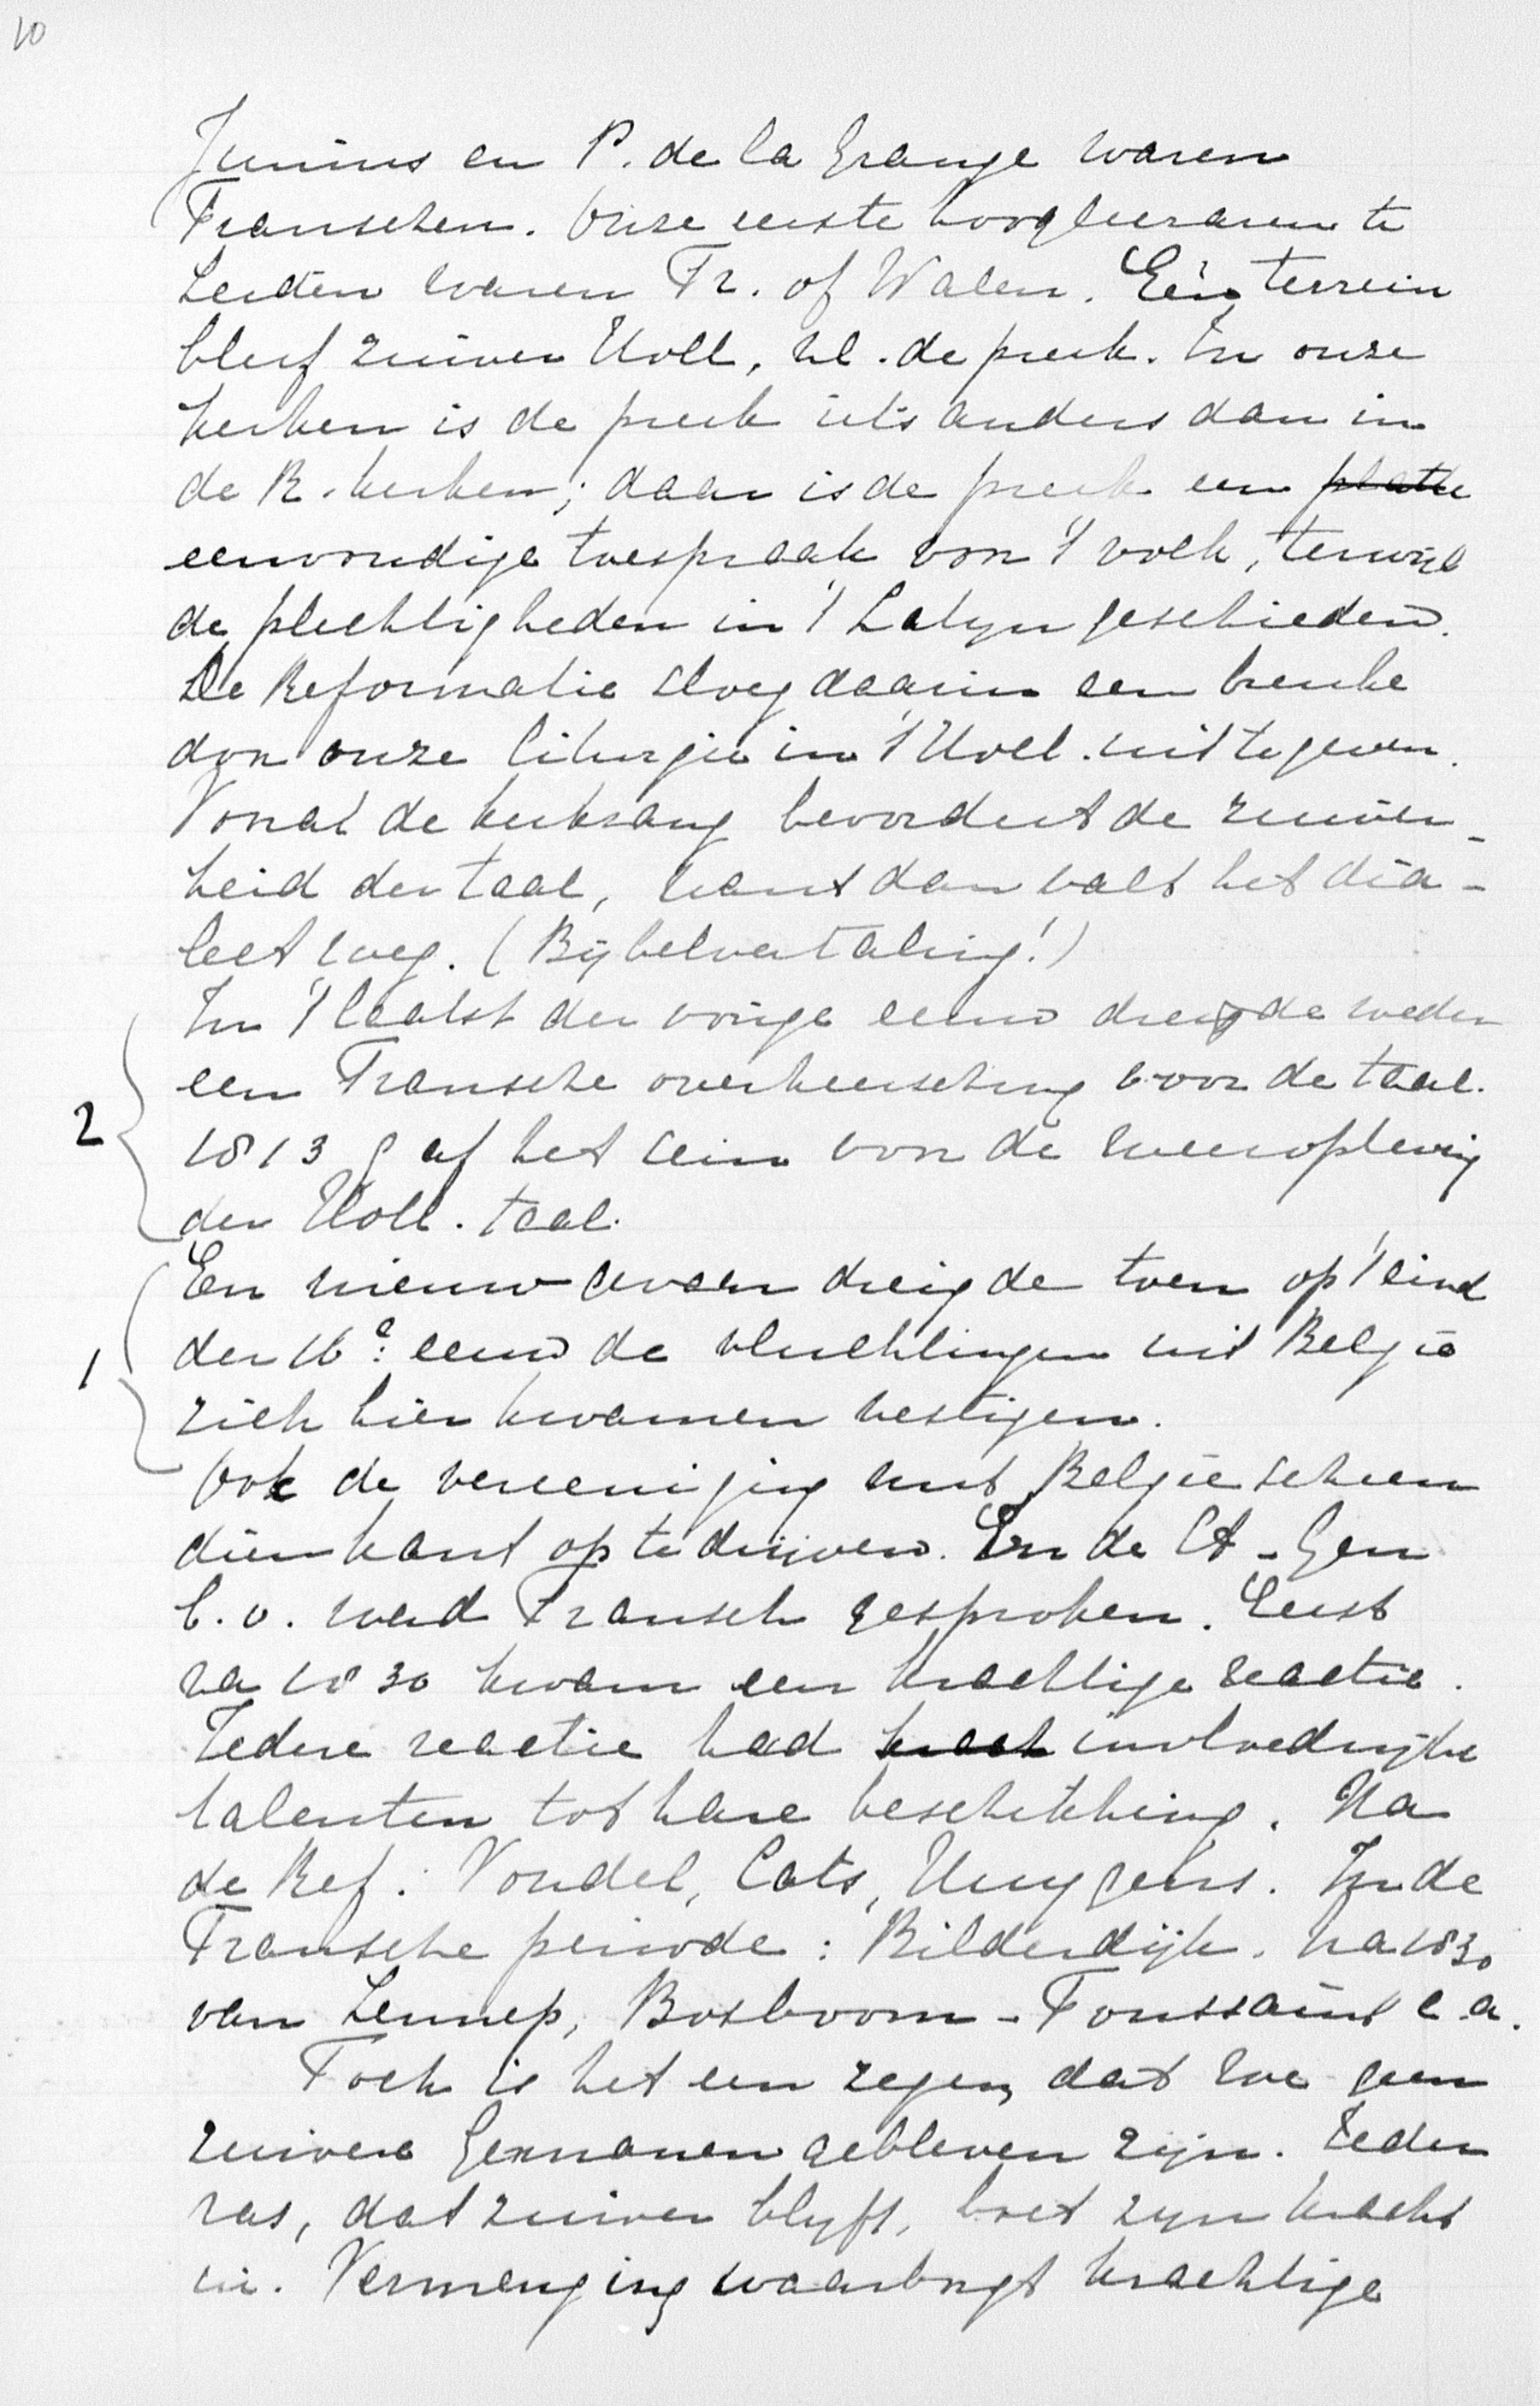 10
Junius en P. de la Grange waren
Franschen. Onze eerste hoogleeraren te
Leiden waren Fr. of Walen. Eén terrein
bleef zuiver Holl, nl. de preek. In onze
kerken is de preek iets anders dan in
de R. kerken; daar is de preek een platte
eenvoudige toespraak voor 't volk, terwijl
de plechtigheden in 't Latijn geschieden.
De Reformatie sloeg daarin een bresche
door onze liturgie in 't Holl. uit te geven.
Vooral de kerkzang bevordert de zuiver-
heid der taal, want dan valt het dia-
lect weg. (Bijbelvertaling!)
In 't laatst der vorige eeuw dreigde weder
een Fransche overheersching voor de taal.
2
1813 gaf het sein voor de weeropleving
der Holl. taal.
Een nieuw gevaar dreigde toen op 't eind
der 16e eeuw de vluchtelingen uit België
1
zich hier kwamen vestigen.
Ook de vereeniging met België scheen
dien kant op te drijven. In de St-Gen
b.v. werd Fransch gesproken. Eerst
na 1830 kwam een krachtige reactie.
Iedere reactie had kracht invloedrijke
talenten tot hare beschikking. Na
de Ref: Vondel, Cats, Huygens. In de
Fransche periode: Bilderdijk. Na 1830
van Lennep, Bosboom-Toussaint e.a.
Toch is het een zegen, dat we geen
zuivere Germanen gebleven zijn. Ieder
ras, dat zuiver blyft, boet zyn kracht
in. Vermenging waarborgt krachtige